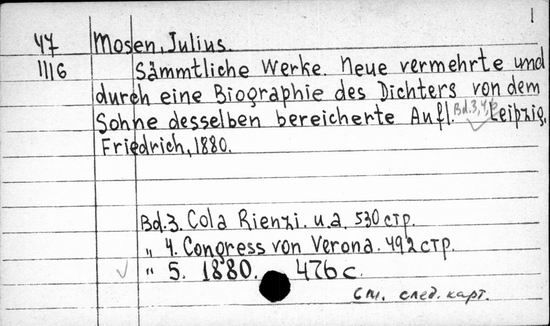 1
47 Mosen, Julius.
1116 Sämmtliche Werke. Neue vermehrte und
durch eine Biographie des Dichters von dem
Sohne desselben bereicherte Aufl. Bd.3,4,5 Leipzig,
Friedrich, 1880.
Bd.3. Cola Rienzi. u.a. 530 стр.
„ 4. Congress von Verona. 492 стр.
„ 5. 1880. 476 с.
См. след. карт.